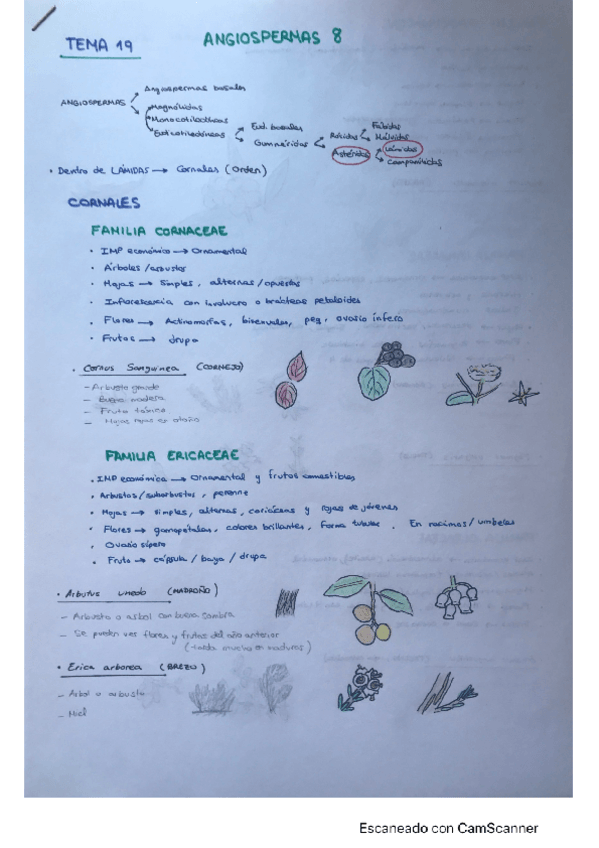 TEMA 19
ANGIOSPERMAS 8
ANGIOSPERMAS
Angiospermas basales
Magnólidas
Monocotiledóneas
Eudicotiledóneas
Eud. basales
Gunnéridas
Rósidas
Astéridas
Fábidas
Málvidas
Lámidas
Campanúlidas
• Dentro de LÁMIDAS → Cornales (Orden)
CORNALES
FAMILIA CORNACEAE
• IMP económico → Ornamental
• Árboles / arbustos
• Hojas → Simples, alternas / opuestas
• Inflorescencia con involucro o brácteas petaloides
• Flores → Actinomorfas, bisexuales, peq, ovario ínfero
• Frutos → drupa
• Cornus Sanguinea (CORNEJO)
- Arbusto grande
- Buena madera
- Fruto tóxico
- Hojas rojas en otoño
FAMILIA ERICACEAE
• IMP económica → Ornamental y frutos comestibles
• Arbustos / subarbustos, perenne
• Hojas → simples, alternas, coriáceas y rojas de jóvenes
• Flores → gamopétalas, colores brillantes, forma tubular. En racimos / umbelas
• Ovario súpero
• Fruto → cápsula / baya / drupa
• Arbutus unedo (MADROÑO)
- Arbusto o arbol con buena sombra
- Se pueden ver flores y frutos del año anterior
(tarda mucho en madurar)
• Erica arborea (BREZO)
- Arbol o arbusto
- Miel
Escaneado con CamScanner